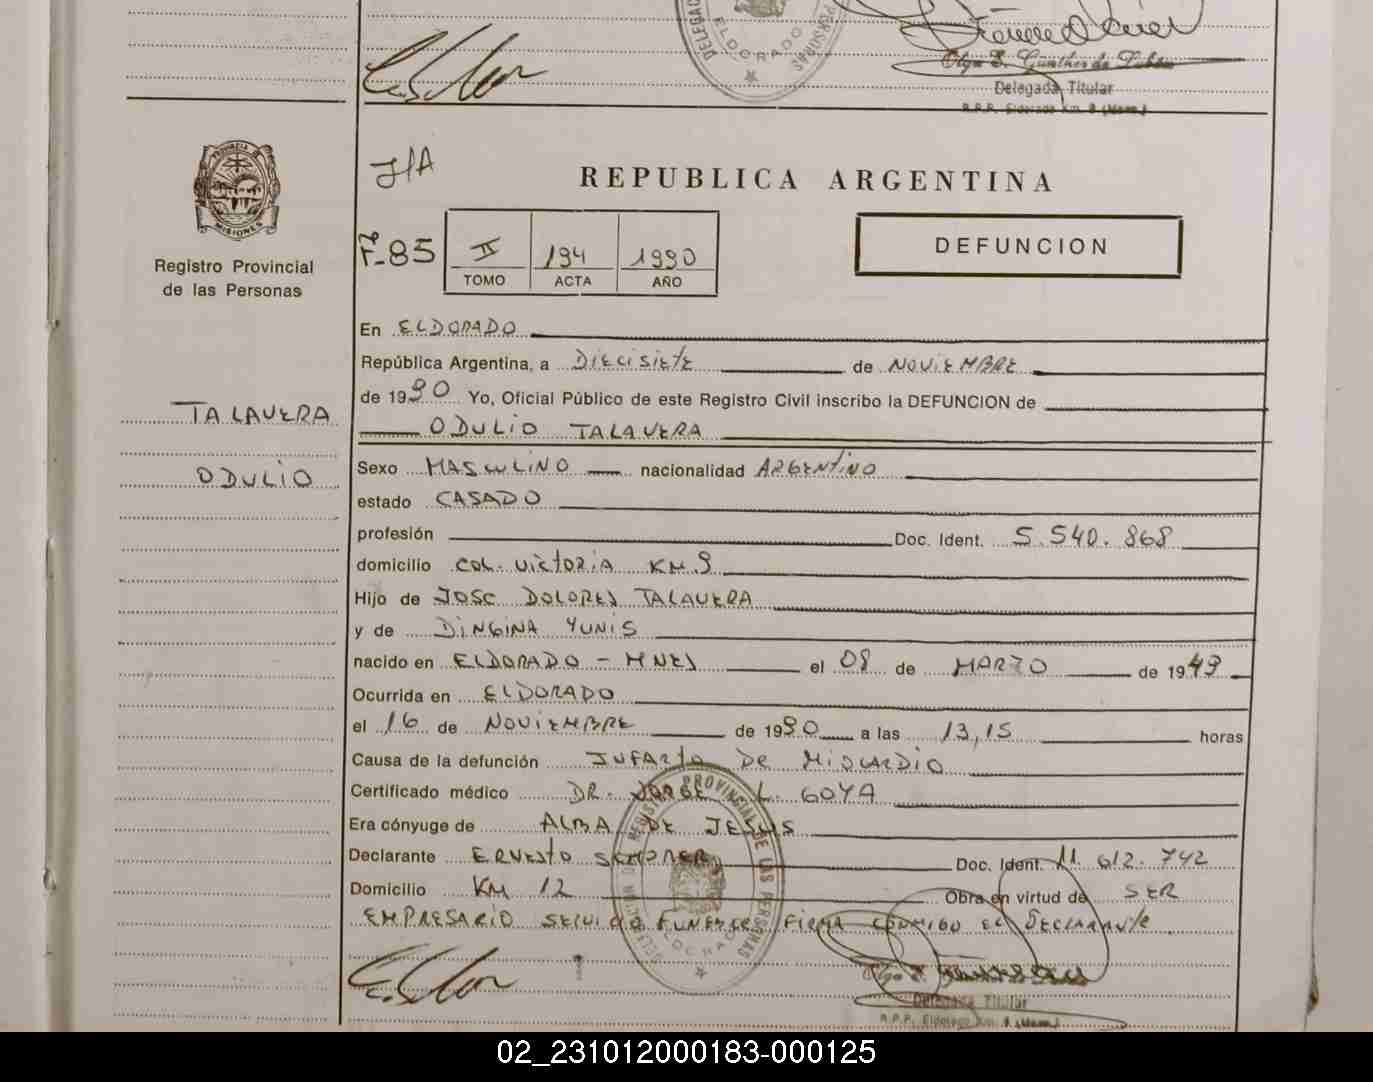 DELEGAC
PERSONAS
ELDORADO
Olga E. Günther de Lubbm
Delegada Titular
R.P.R. Eldorado Km. 9 (Mnes.)
J/A
REPUBLICA ARGENTINA
PROVINCIA DE
MISIONES
Registro Provincial
de las Personas
Fº-85
II 194 1990
TOMO ACTA AÑO
DEFUNCION
En ELDORADO
República Argentina, a DIECISIETE de NOVIEMBRE
de 1990 Yo, Oficial Público de este Registro Civil inscribo la DEFUNCION de
TALAVERA
ODULIO TALAVERA
Sexo MASCULINO nacionalidad ARGENTINO
ODULIO
estado CASADO
profesión Doc. Ident. 5.540.868
domicilio COL. VICTORIA KM.9
Hijo de JOSE DOLORES TALAVERA
y de DINGINA YUNIS
nacido en ELDORADO - MNES el 08 de MARZO de 1949
Ocurrida en ELDORADO
el 16 de NOVIEMBRE de 1990 a las 13,15 horas
Causa de la defunción INFARTO DE MIOCARDIO
Certificado médico DR. JORGE L. GOYA
Era cónyuge de ALBA DE JESUS
Declarante ERNESTO Doc. Ident. 11.612.742
Domicilio KM 12 Obra en virtud de SER
EMPRESARIO SERVICIO FUNEBRE FIRMA CONMIGO EL DECLARANTE
DELEGACION DE REGISTRO PROVINCIAL DE LAS PERSONAS
ELDORADO
Delegada Titular
R.P.P. Eldorado Km. 9 (Mnes.)
02_231012000183-000125